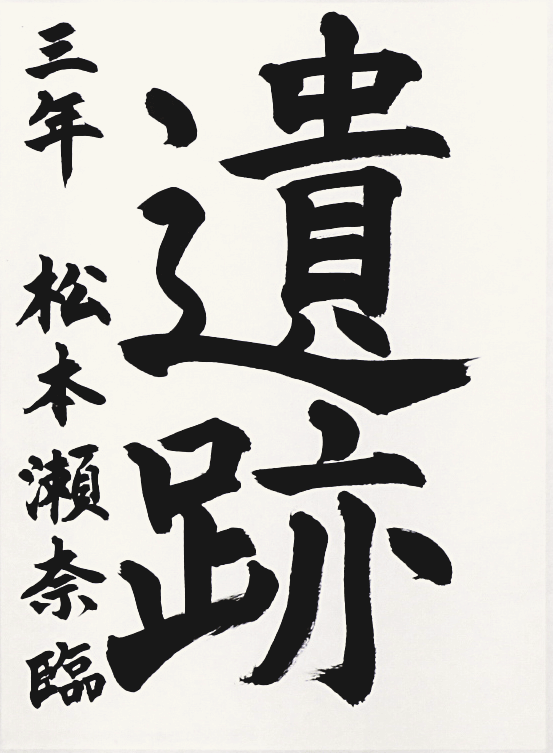 遺跡
三年 松本瀬奈臨